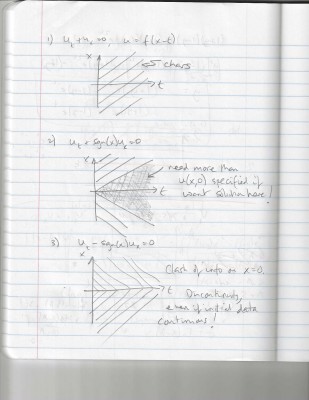 1) u_t + u_x = 0, u = f(x-t)
x
chars
t
2) u_t + sgn(x)u_x = 0
x
need more than
t
u(x,0) specified if
want solution here!
3) u_t - sgn(x)u_x = 0
x
Clash of info on x=0.
t
Discontinuity,
even if initial data
continuous!